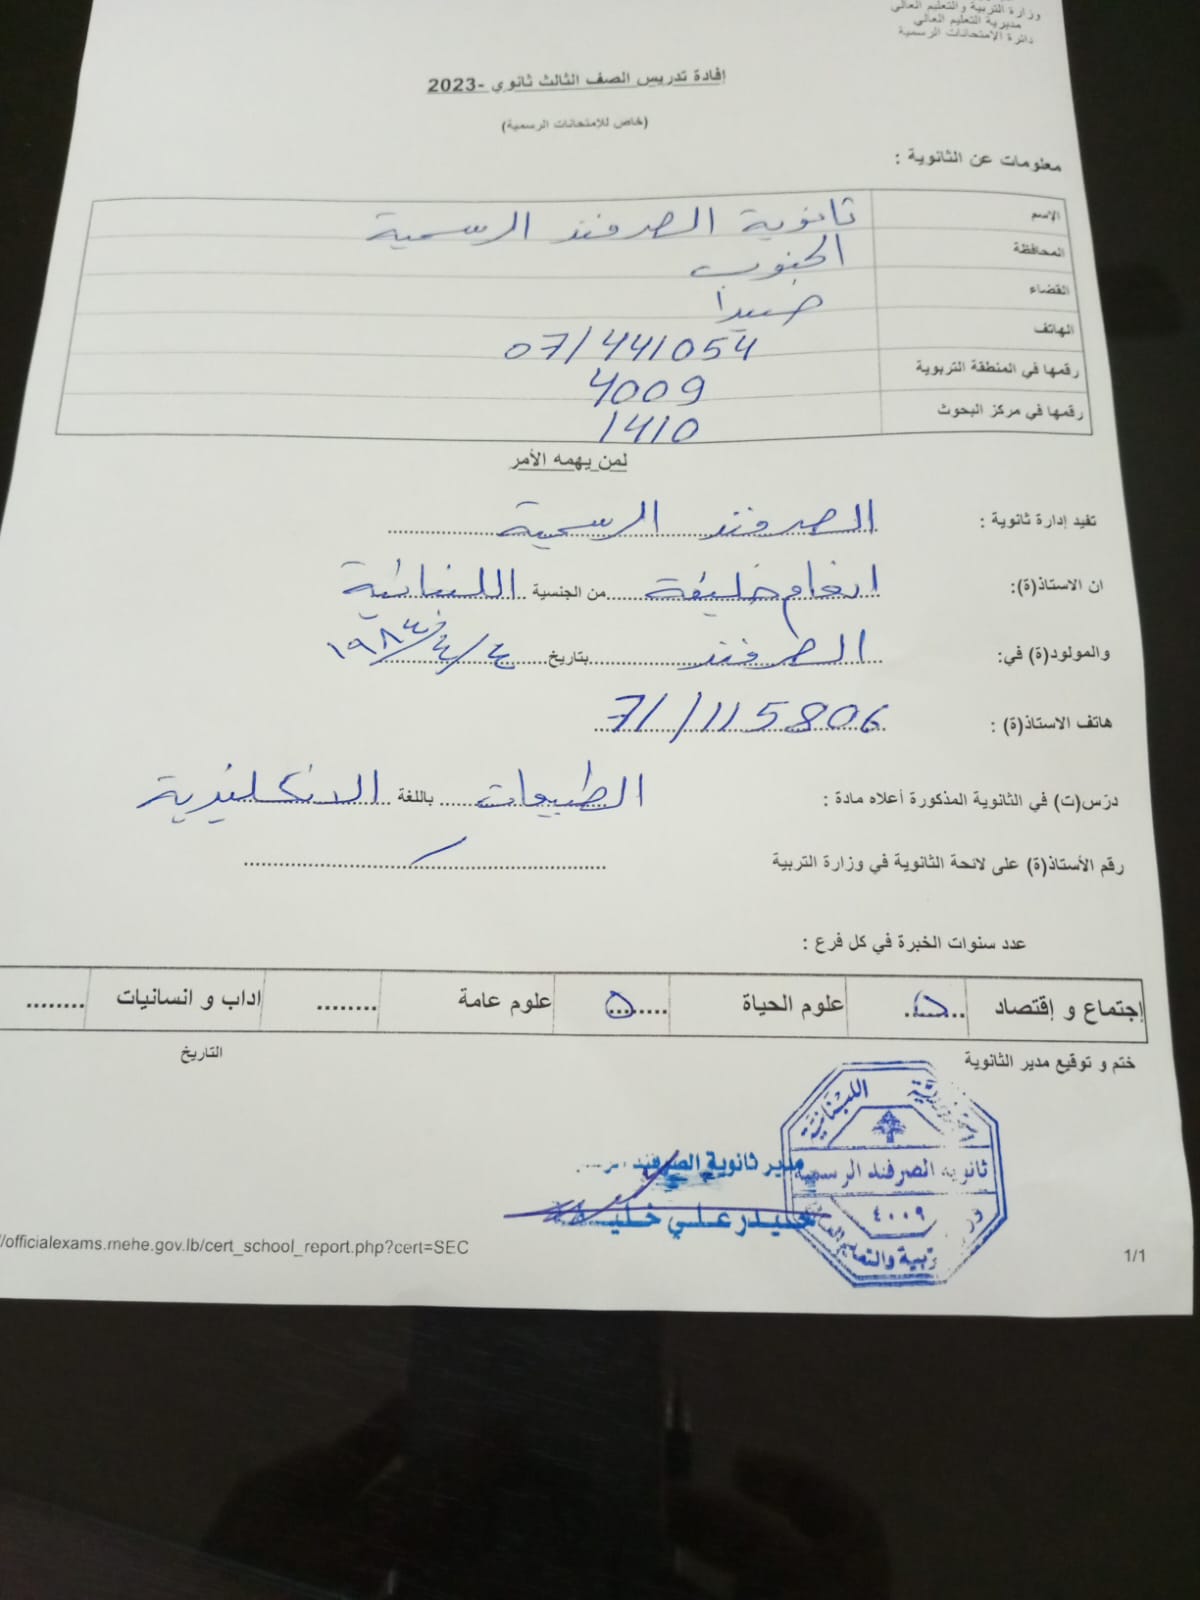 وزارة التربية والتعليم العالي
مديرية التعليم العالي
دائرة الامتحانات الرسمية
إفادة تدريس الصف الثالث ثانوي -2023
(خاص للامتحانات الرسمية)
معلومات عن الثانوية :
الاسم ثانوية الصرفند الرسمية
المحافظة الجنوب
القضاء صيدا
الهاتف 07/441054
رقمها في المنطقة التربوية 4009
رقمها في مركز البحوث 1410
لمن يهمه الأمر
تفيد إدارة ثانوية : الصرفند الرسمية
ان الاستاذ(ة): انغام خليفة من الجنسية اللبنانية
والمولود(ة) في: الصرفند بتاريخ ٤/٤/١٩٨٤
هاتف الاستاذ(ة) : 71/115806
درّس(ت) في الثانوية المذكورة أعلاه مادة : الطبيعات باللغة الانكليزية
رقم الأستاذ(ة) على لائحة الثانوية في وزارة التربية /
عدد سنوات الخبرة في كل فرع :
إجتماع و إقتصاد علوم الحياة ٥ علوم عامة ........ اداب و انسانيات ........
ختم و توقيع مدير الثانوية التاريخ
اللبنانية
ثانوية الصرفند الرسمية
٤٠٠٩
مدير ثانوية الصرفند
حيدر علي خليفة
//officialexams.mehe.gov.lb/cert_school_report.php?cert=SEC 1/1